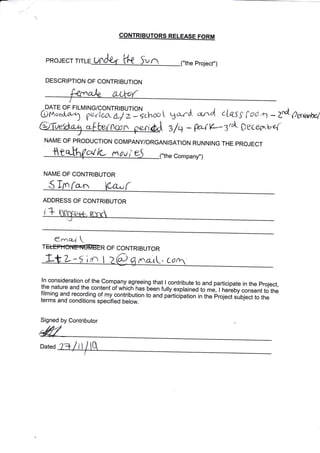 CONTRIBUTORS RELEASE FORM
PROJECT TITLE Under the Sun ("the Project")
DESCRIPTION OF CONTRIBUTION
female actor
DATE OF FILMING/CONTRIBUTION
① Monday period 1/2 - school yard and classroom - 2nd December
② Tuesday afternoon period 3/4 - park - 3rd December
NAME OF PRODUCTION COMPANY/ORGANISATION RUNNING THE PROJECT
Heathpark movies ("the Company")
NAME OF CONTRIBUTOR
Simran Kaur
ADDRESS OF CONTRIBUTOR
17
email
TELEPHONE NUMBER OF CONTRIBUTOR
@gmail.com
In consideration of the Company agreeing that I contribute to and participate in the Project,
the nature and the content of which has been fully explained to me, I hereby consent to the
filming and recording of my contribution to and participation in the Project subject to the
terms and conditions specified below.
Signed by Contributor
Dated 27/11/19